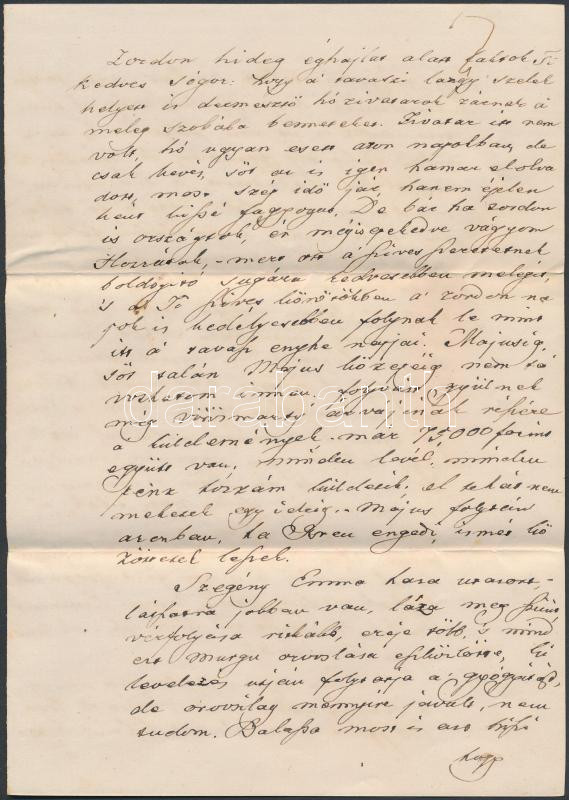 Zordon hideg éghajlat alatt laktok Ti
kedves Sógor: hogy a tavaszi langy szelek
helyett is dermesztő hózivatarok zárnak a
meleg szobába benneteket. Zivatar itt nem
volt, hó ugyan esett azon napokban, de
csak kevés, sőt az is igen hamar elolva
dott, most szép idő jár, hanem éjjelen
ként kissé fagyogat. De bár ha zordon
is országtok, én mégis epekedve vágyom
Hozzátok, - mert ott a szíves szeretetnek
boldogító sugára kedvesebben melegít,
s a Ti szíves körötökben a zordon na
pok is kedélyesebben folynak le mint
itt a tavasz enyhe napjai. Májusig,
sőt talán Május közepéig nem tá
vozhatom innen. folyvást gyűlnek
még Vörösmarty árvájinak részére
a küldemények. már 75,000 forint
együtt van, minden levél, minden
pénz hozzám küldetik, el tehát nem
mehetek egy ideig. - Május folytán
azonban, ha Isten engedi, ismét kö
zöttetek leszek.
Szegény Emma haza utazott, -
láfatra jobban van, láza meg szünt,
vérfolyása ritkább, ereje több, s mind
ezt Murgu orvoslása eszközlötte, ki
levelezés utján folytatja a gyógyítást,
de orvosilag mennyire javult, nem
tudom. Balassa most is azt hiszi
hogy
darabanth